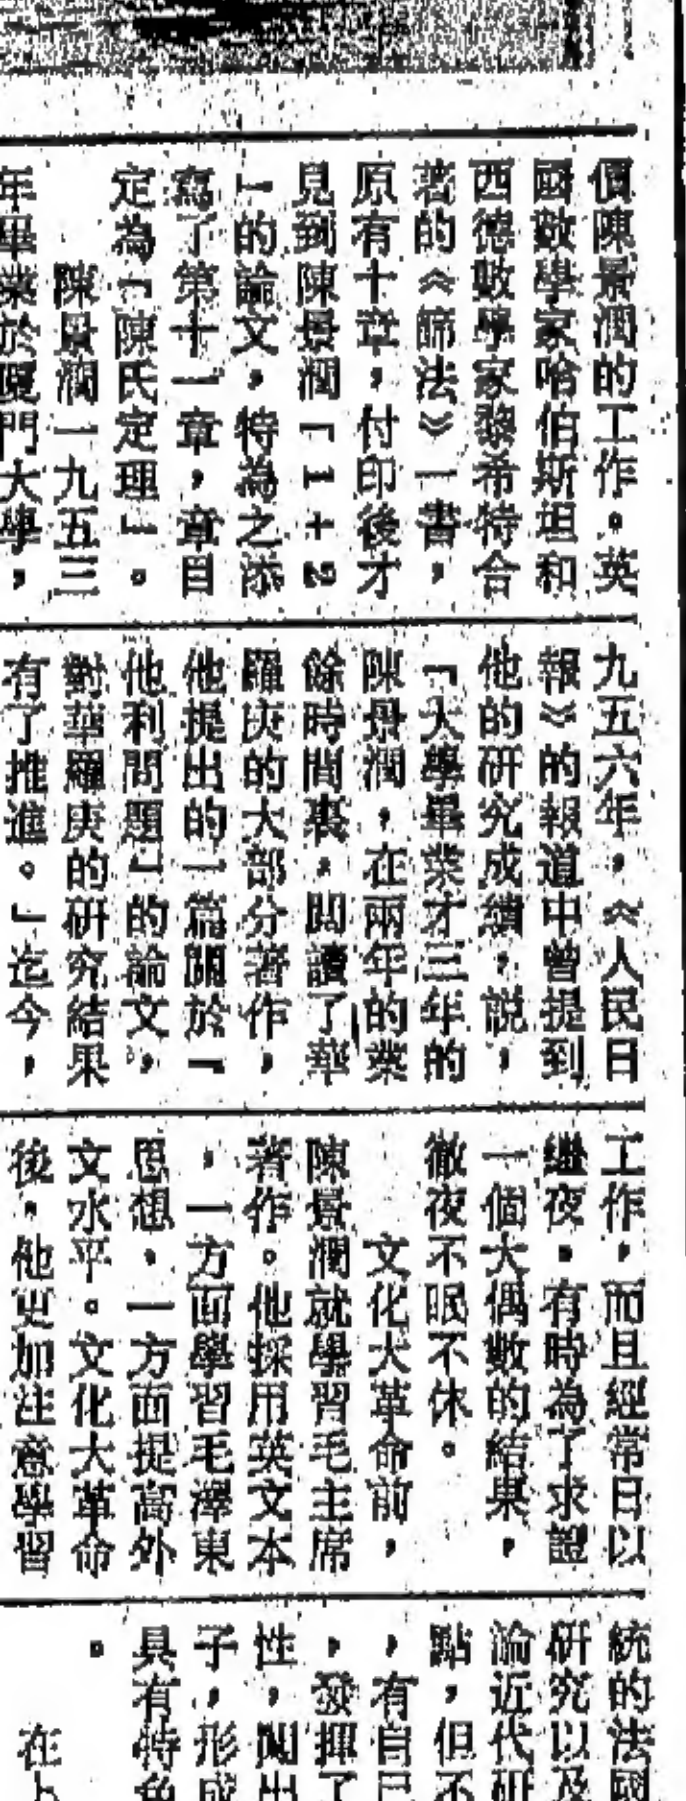 價陳景潤的工作。英
國數學家哈伯斯坦和
西德數學家黎希特合
著的《篩法》一書，
原有十章，付印後才
見到陳景潤「1＋2
」的論文，特為之添
寫了第十一章，章目
定為「陳氏定理」。
陳景潤一九五三
年畢業於廈門大學，
九五六年，《人民日
報》的報道中曾提到
他的研究成績，説，
「大學畢業才三年的
陳景潤，在兩年的業
餘時間裏，閱讀了華
羅庚的大部分著作，
他提出的一篇關於「
他利問題」的論文，
對華羅庚的研究結果
有了推進。」迄今，
工作，而且經常日以
繼夜。有時為了求證
一個大偶數的結果，
徹夜不眠不休。
文化大革命前，
陳景潤就學習毛主席
著作。他採用英文本
，一方面學習毛澤東
思想，一方面提高外
文水平。文化大革命
後，他更加注意學習
統的法國
研究以及
論近代研
點，但不
，有自己
，發揮了
性，闖出
子，形成
具有特色
。
在上